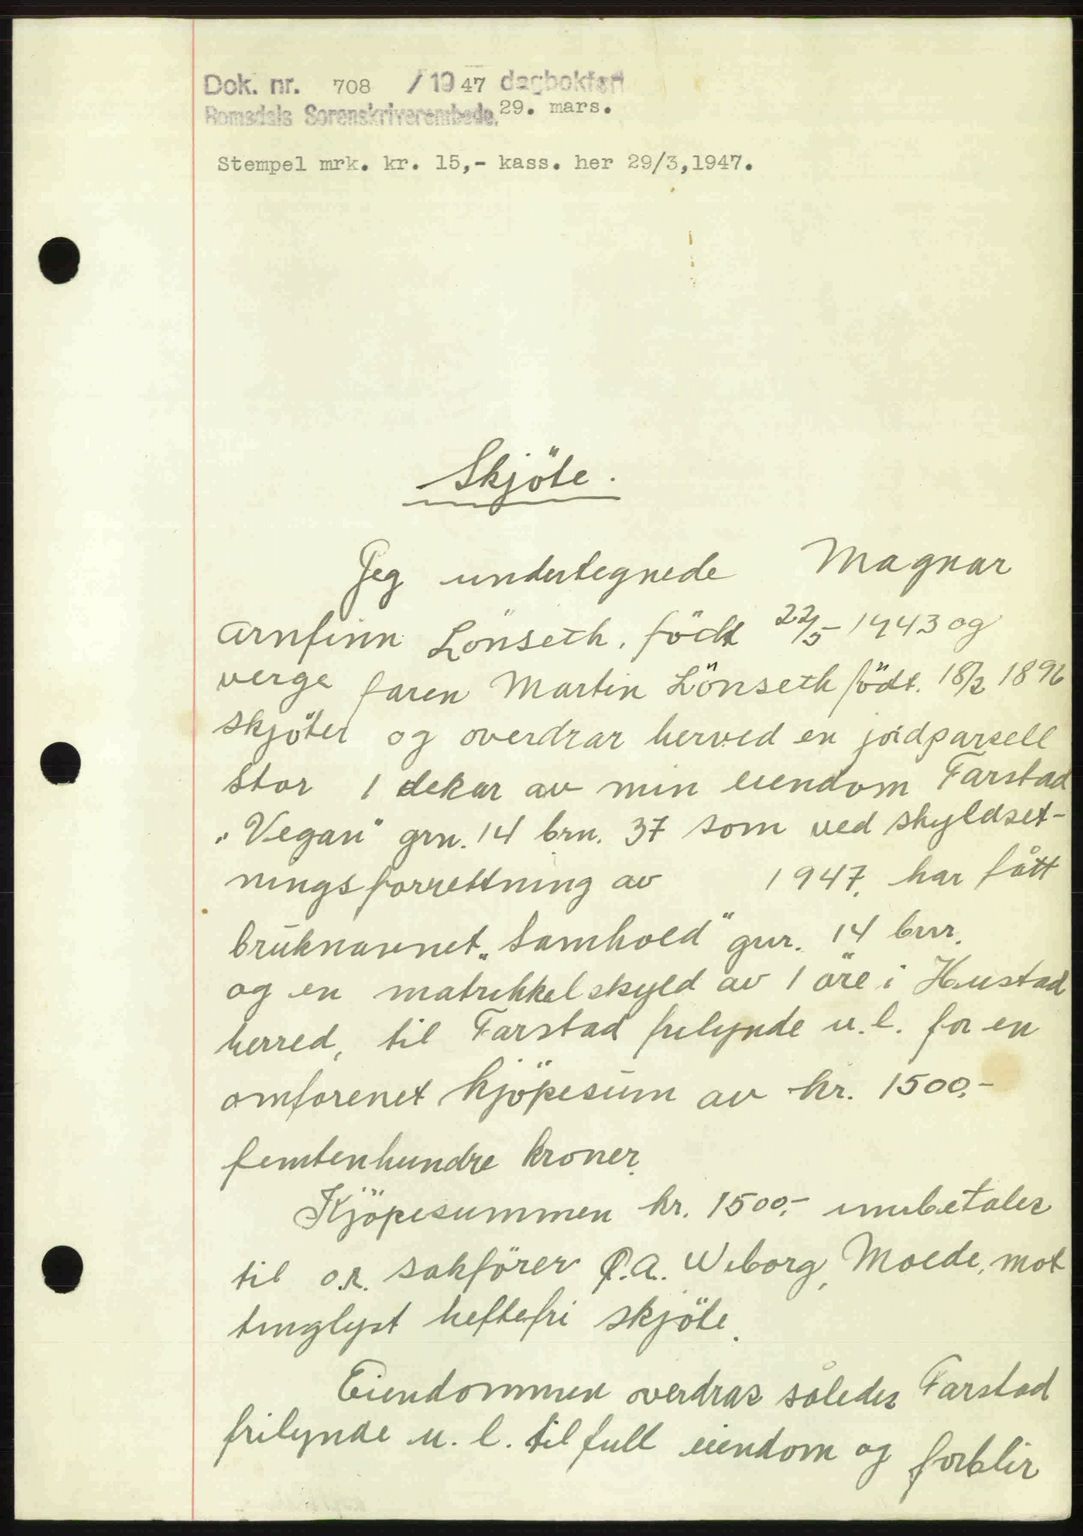 Dok. nr. 708 / 1947 dagbokført
Romsdals Sorenskriverembede. 29. mars.
Stempel mrk. kr. 15,- kass. her 29/3,1947.
Skjöte.
Jeg undertegnede Magnar
Arnfinn Lönseth, född 22/5-1943 og
verge faren Martin Lönseth födt. 18/2 1896
skjöter og overdrar herved en jordparsell
stor 1 dekar av min eiendom Farstad
„Vegan" grn. 14 brn. 37 som ved skyldset-
ningsforrettning av 1947, har fått
bruknavnet „Samhold" gnr. 14 bnr.
og en matrikkelskyld av 1 öre i Hustad
herred, til Farstad frilynde u.l. for en
omforenet kjöpesum av kr. 1500,-
femtenhundre kroner.
Kjöpesummen kr. 1500,- innbetales
til o.r. sakförer A. Wiborg, Molde, mot
tinglyst heftefri skjöte.
Eiendommen overdras således Farstad
frilynde u. l. til full eiendom og forblir